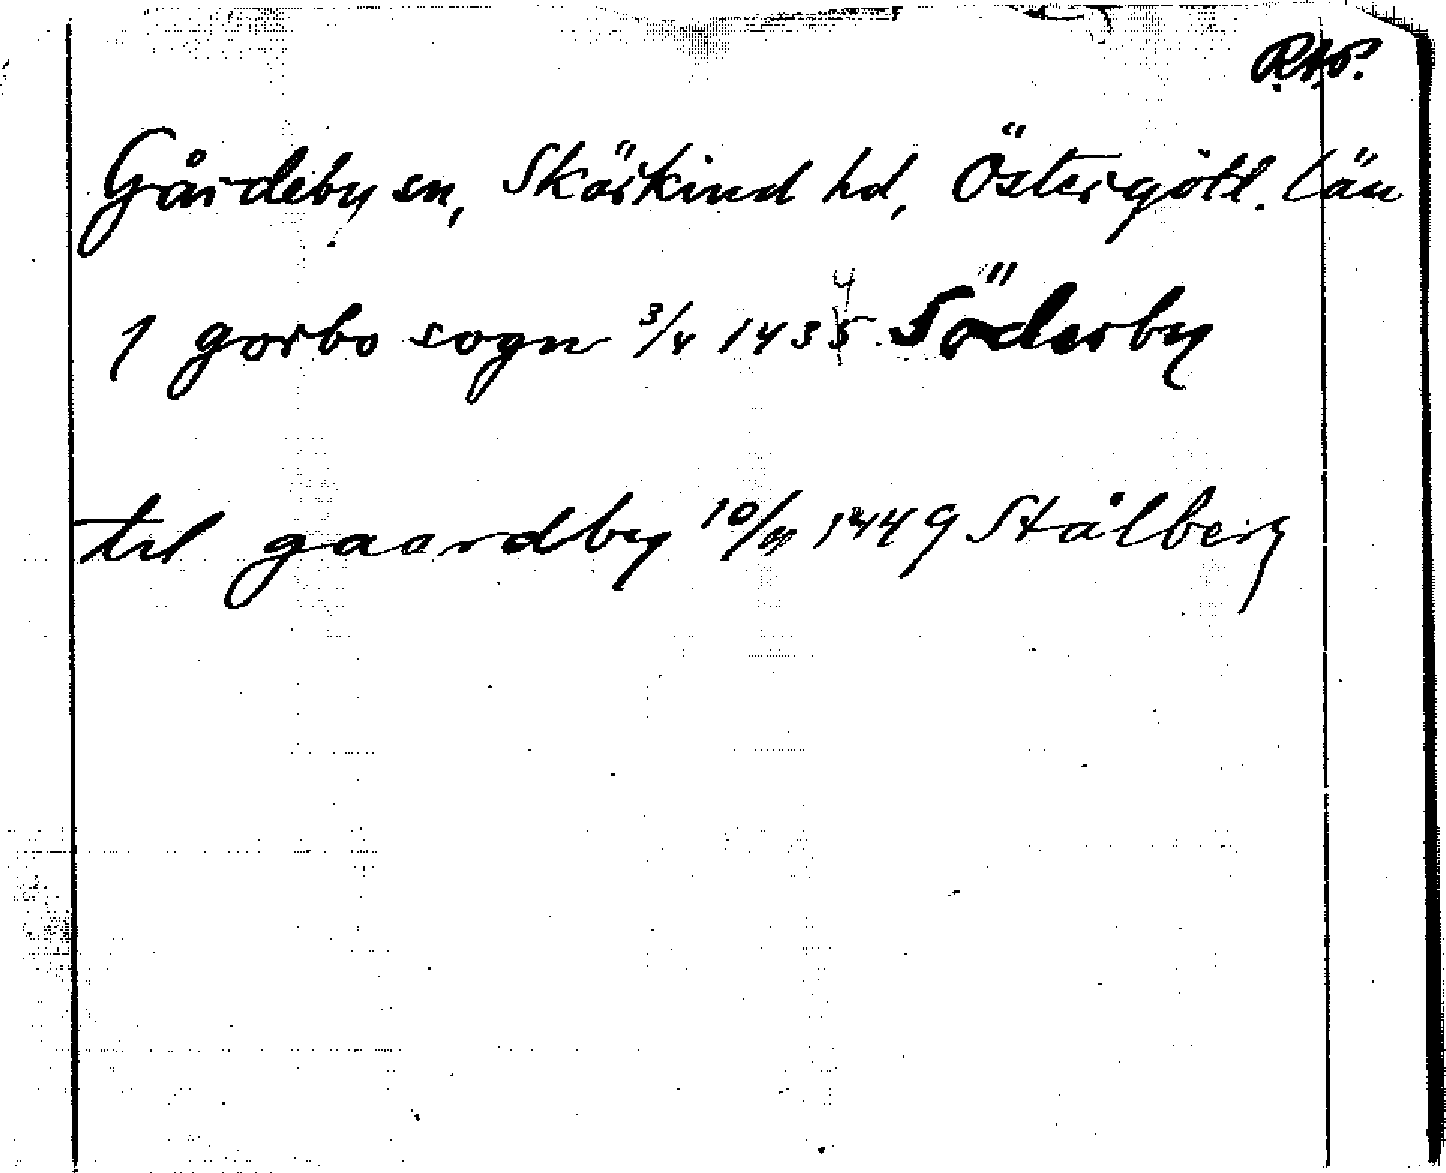 RAP.
Gårdeby sn, Skärkind hd, Östergötl. län
J gorbo sogn 3/4 1435 4 Söderby
til gaardby 10/9 1449 Stålberg